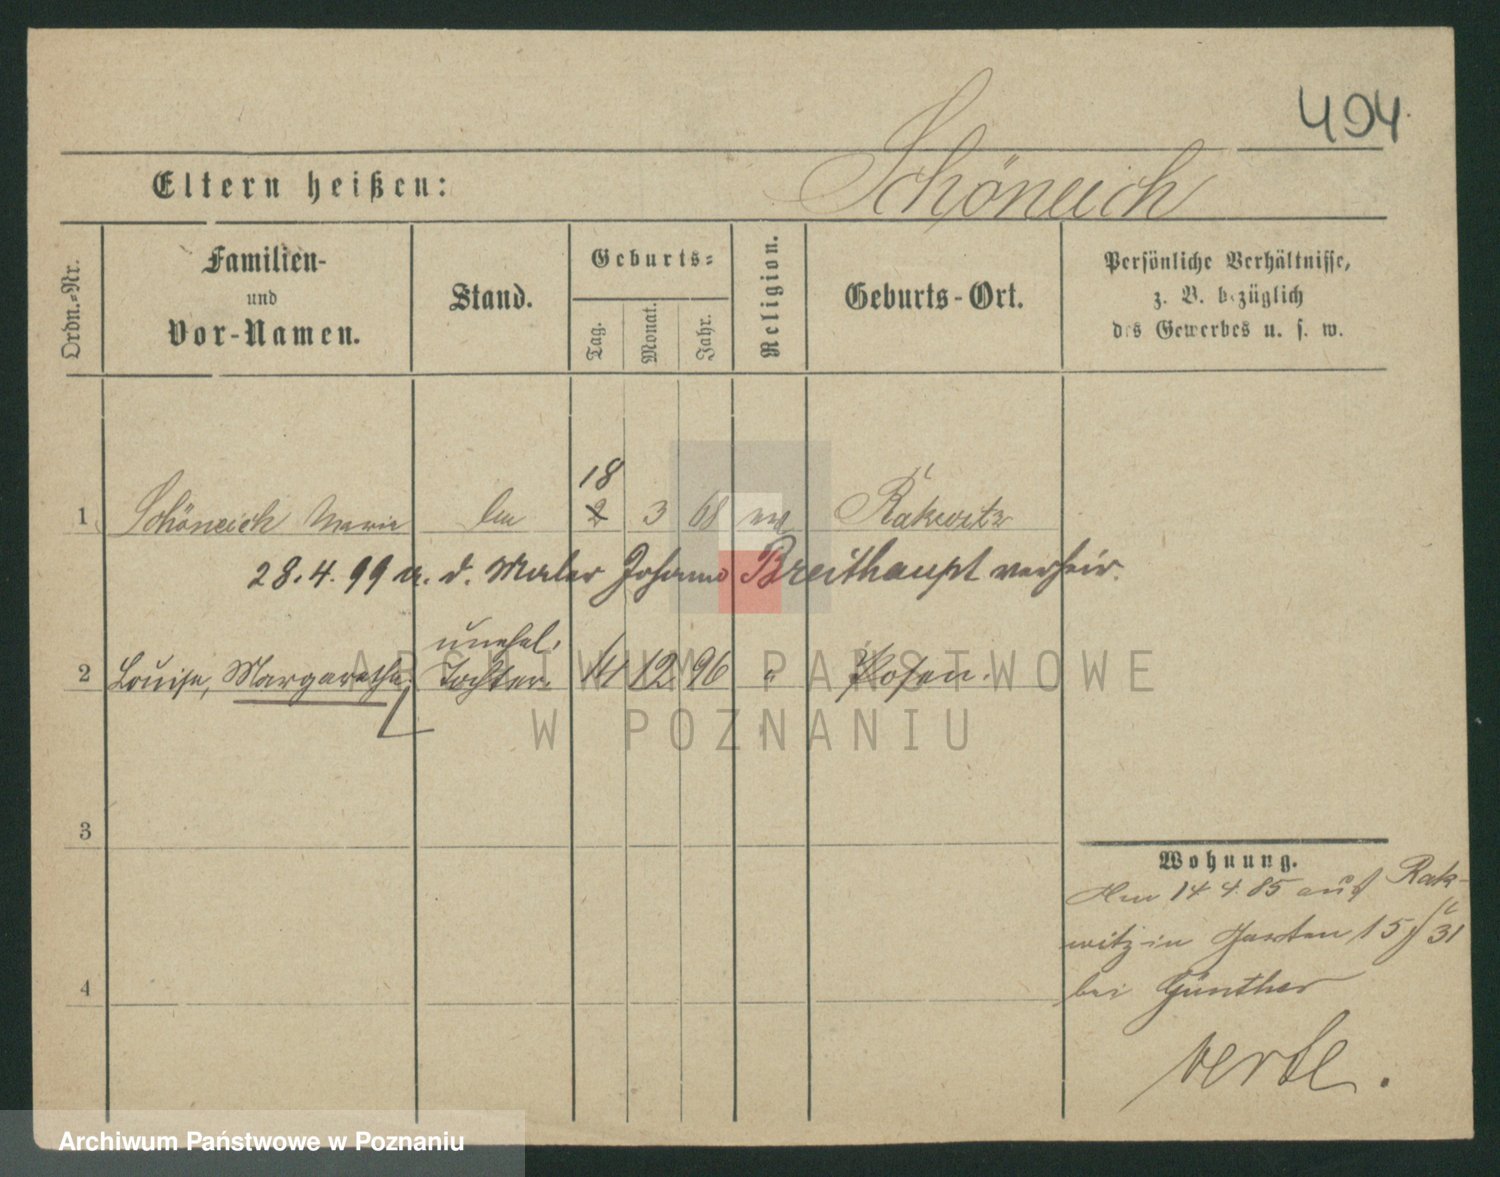 494.
Eltern heißen: Schöneich
Ordn.-Nr.
Familien-
und
Vor-Namen.
Stand.
Geburts-
Tag.
Monat.
Jahr.
Religion.
Geburts-Ort.
Persönliche Verhältnisse,
z. B. bezüglich
des Gewerbes u. s. w.
18
1 Schöneich Marie 2 3 68 ev Rakwitz
28.4.99 m. d. Maler Johann Breithaupt verheir.
unehel.
2 Louise, Margarethe Tochter. 14 12 96 " Posen.
ARCHIWUM PAŃSTWOWE
W POZNANIU
3
Wohnung.
14 4. 85 aus Rak-
witz in Garten 15 / 31
4
bei Günther
Archiwum Państwowe w Poznaniu